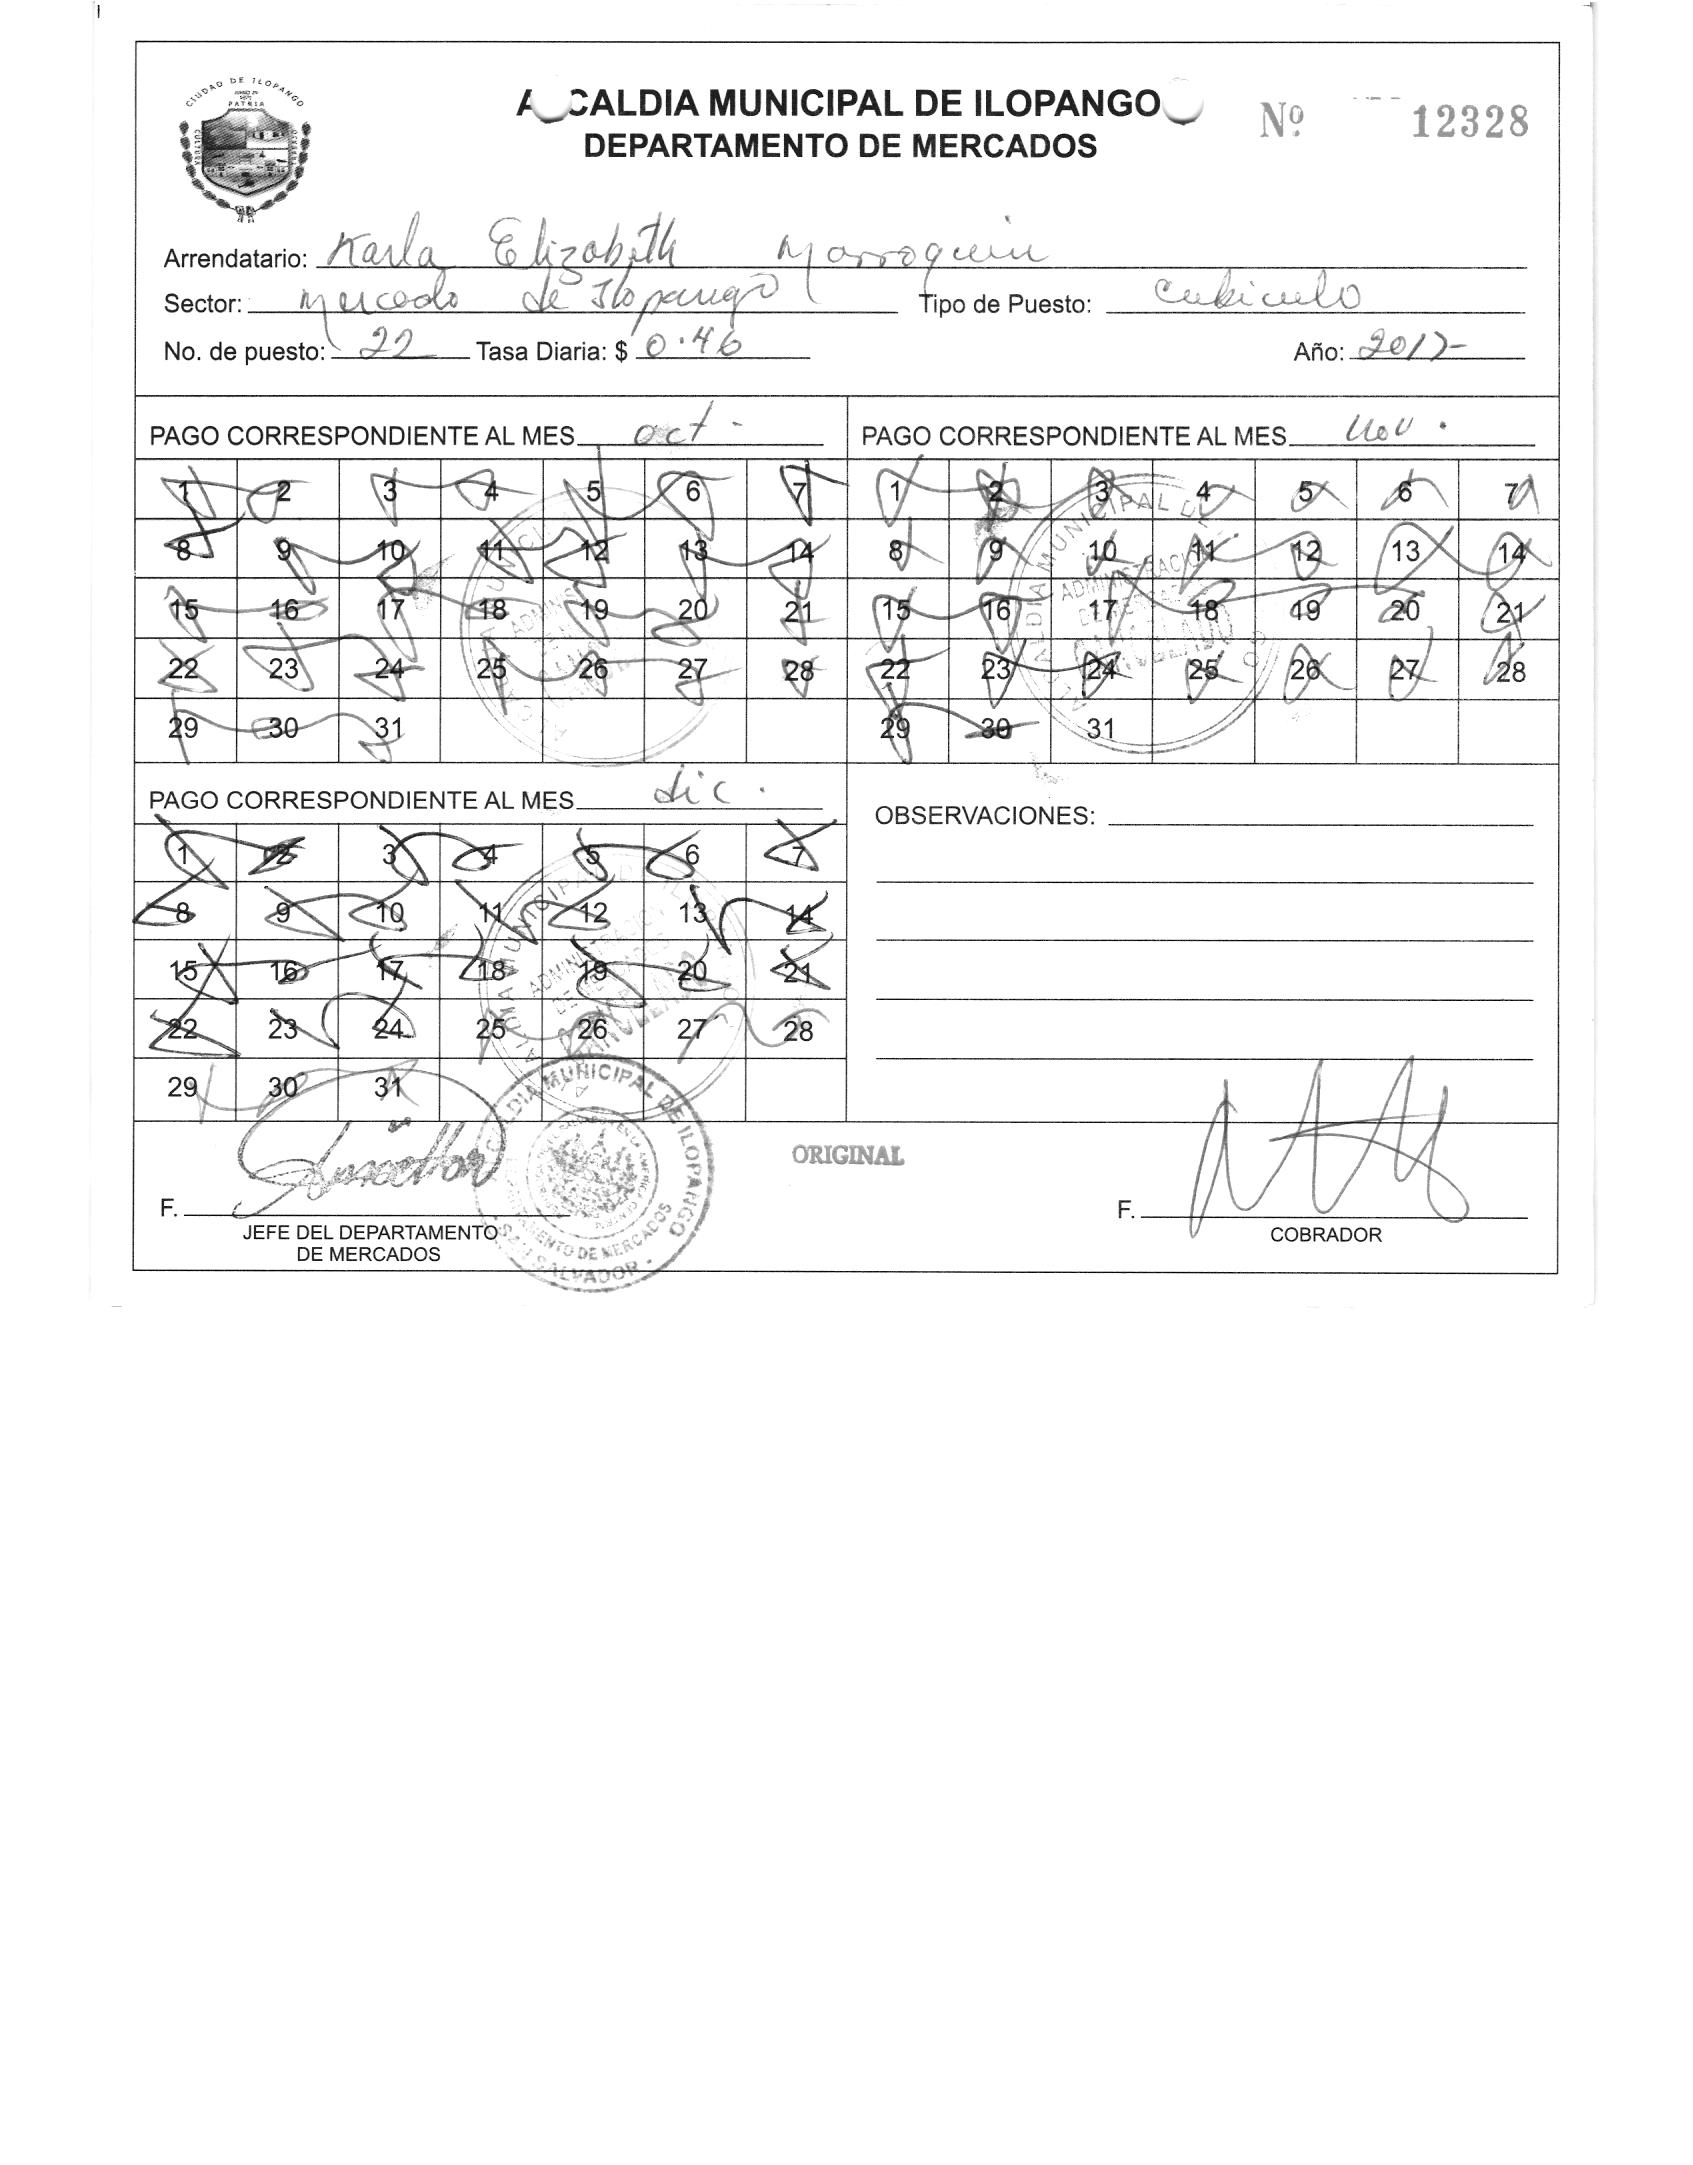 CIUDAD DE ILOPANGO
PATRIA
CULTURA
ALCALDIA MUNICIPAL DE ILOPANGO
DEPARTAMENTO DE MERCADOS
Nº 12328
Arrendatario: Karla Elizabeth Marroquin
Sector: Mercado de Ilopango Tipo de Puesto: Cubiculo
No. de puesto: 22 Tasa Diaria: $ 0.46 Año: 2017
PAGO CORRESPONDIENTE AL MES oct -
1 2 3 4 5 6 7
8 9 10 11 12 13 14
15 16 17 18 19 20 21
22 23 24 25 26 27 28
29 30 31
PAGO CORRESPONDIENTE AL MES Nov .
1 2 3 4 5 6 7
8 9 10 11 12 13 14
15 16 17 18 19 20 21
22 23 24 25 26 27 28
29 30 31
ALCALDIA MUNICIPAL DE
ADMINISTRACION
DE MERCADOS
CANCELADO
PAGO CORRESPONDIENTE AL MES dic .
1 2 3 4 5 6 7
8 9 10 11 12 13 14
15 16 17 18 19 20 21
22 23 24 25 26 27 28
29 30 31
OBSERVACIONES:
ALCALDIA MUNICIPAL DE ILOPANGO
DEPARTAMENTO DE MERCADOS
SALVADOR
ORIGINAL
F.
JEFE DEL DEPARTAMENTO
DE MERCADOS
F.
COBRADOR